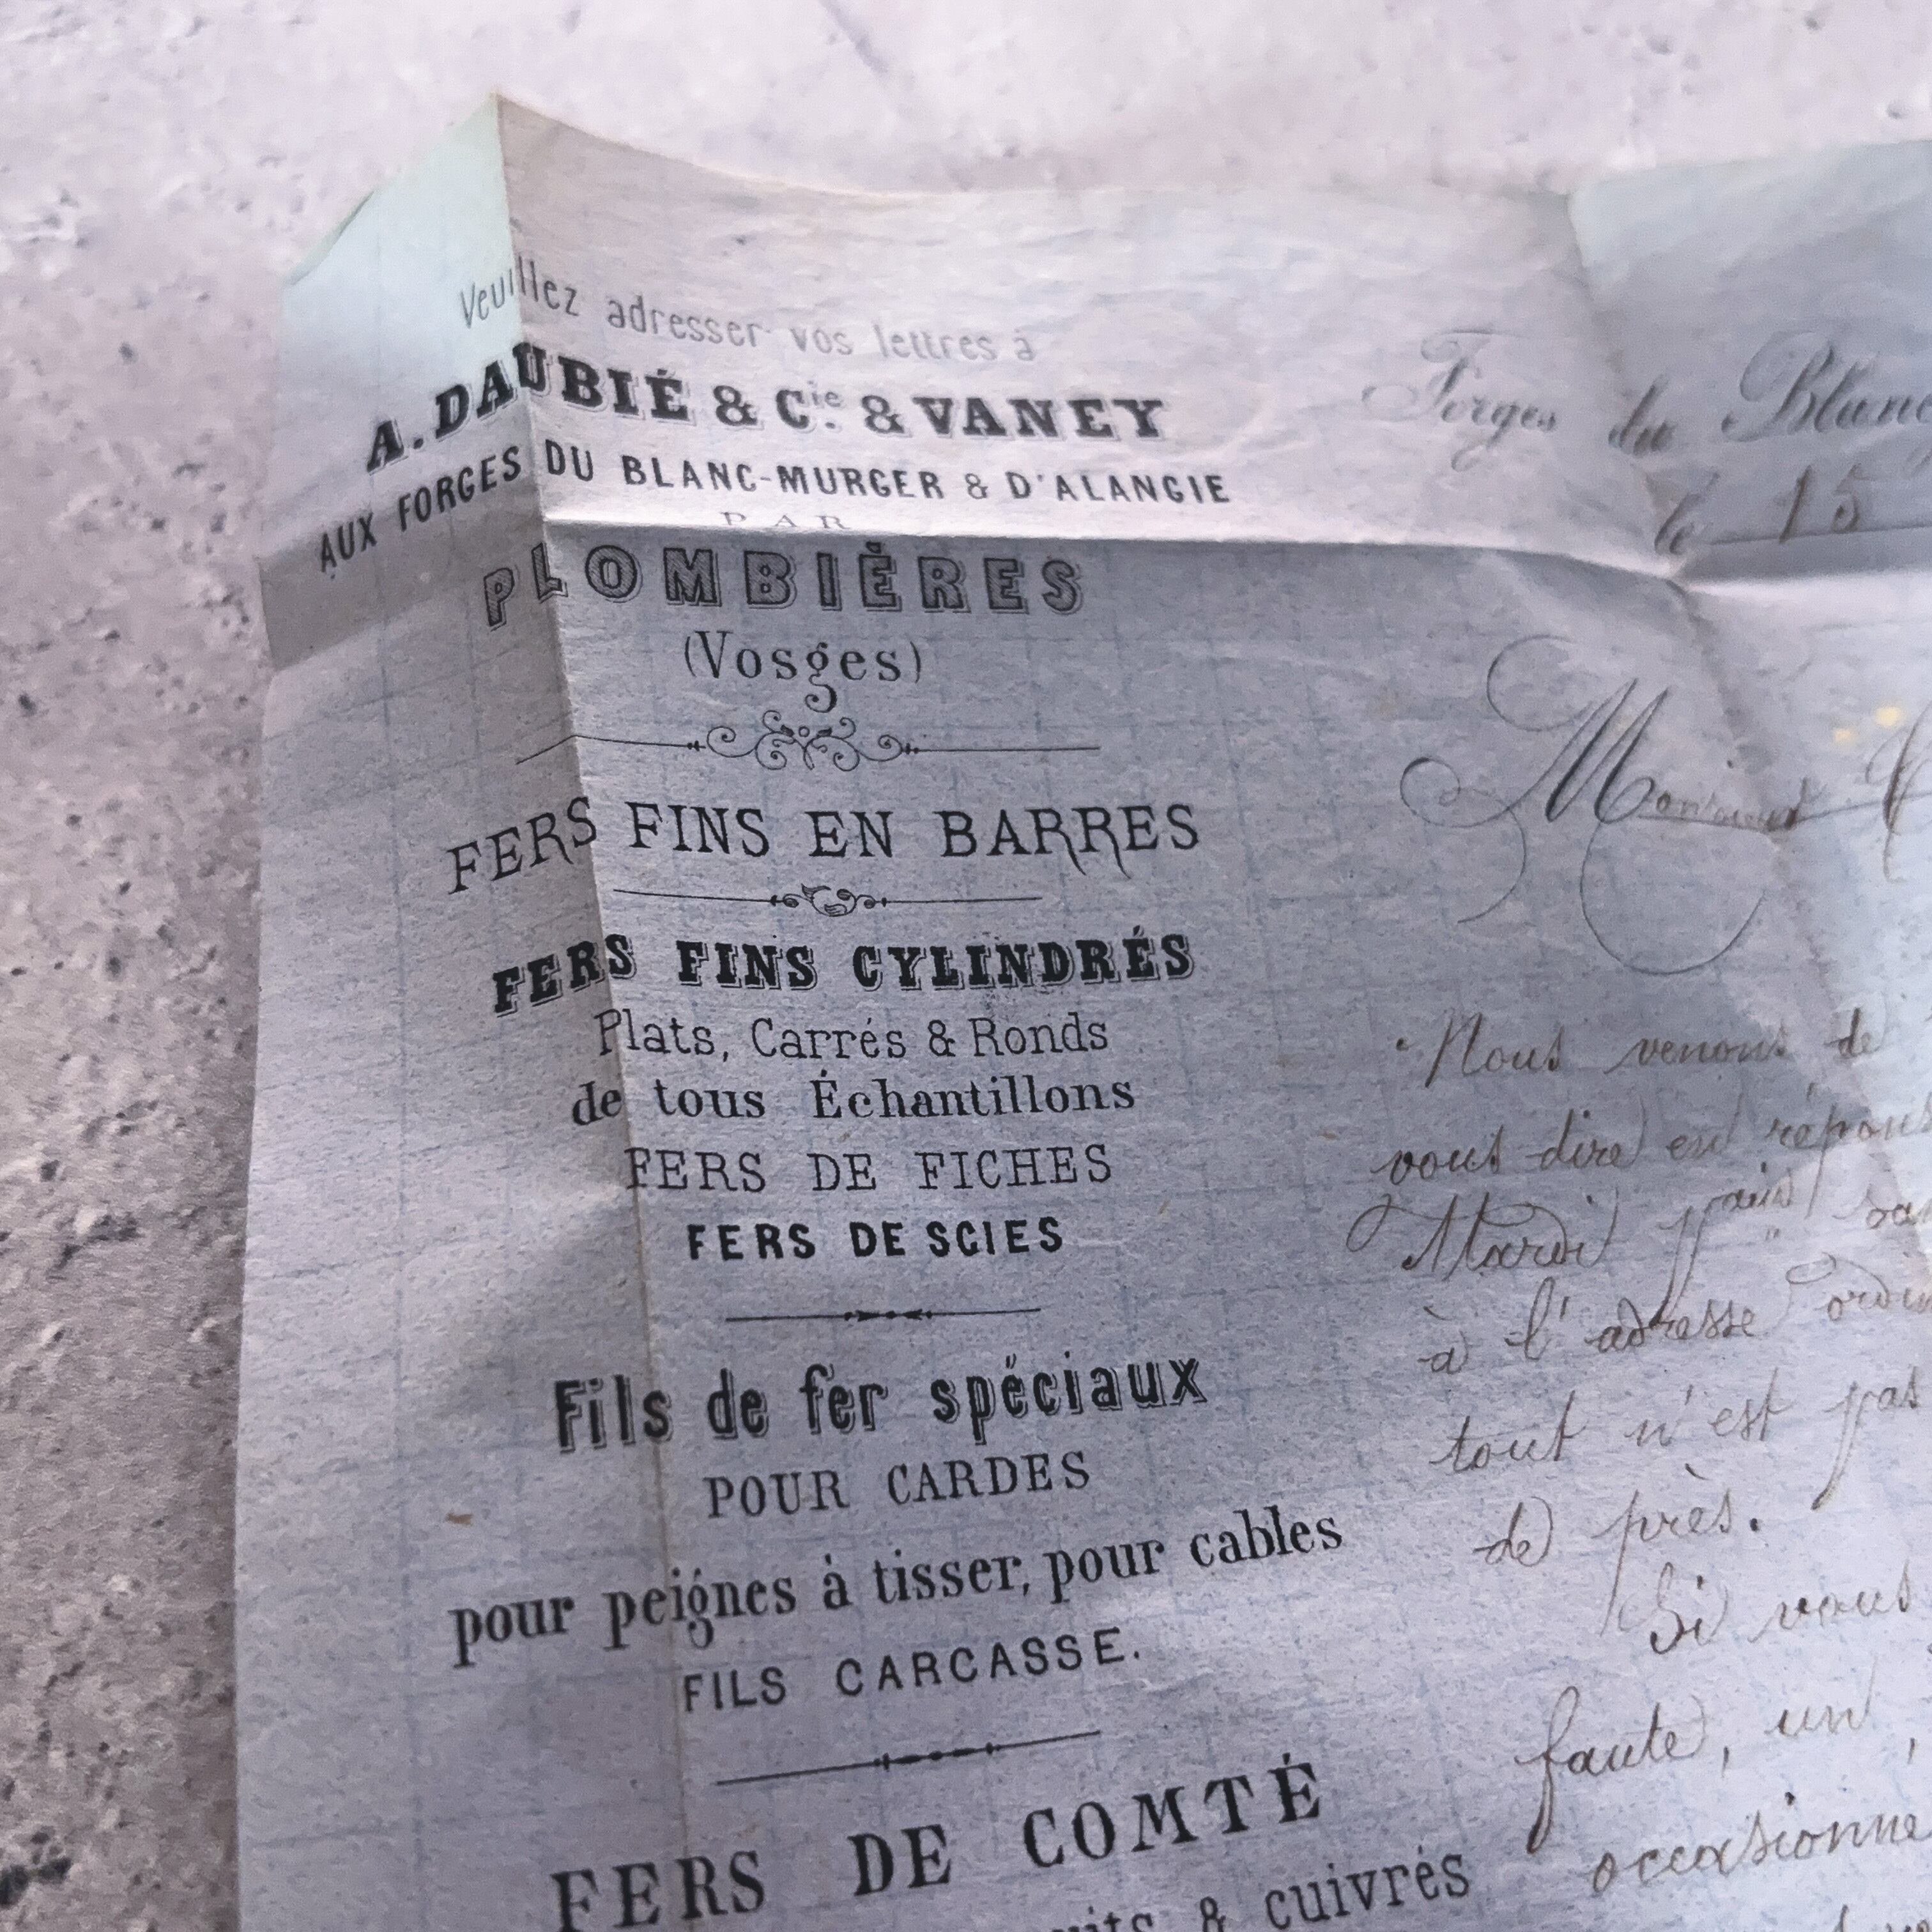 Veuillez adresser vos lettres à
A. DAUBIÉ & Cie. & VANEY
AUX FORGES DU BLANC-MURGER & D'ALANGIE
PAR
PLOMBIÈRES
(Vosges)
FERS FINS EN BARRES
FERS FINS CYLINDRÉS
Plats, Carrés & Ronds
de tous Échantillons
FERS DE FICHES
FERS DE SCIES
Fils de fer spéciaux
POUR CARDES
pour peignes à tisser, pour cables
FILS CARCASSE.
FERS DE COMTÉ
& cuivrés
Forges du Blanc
le 15
Monsieur
Nous venons de
vous dire en répons
Mardi
à l'adresse ordin
tout n'est pas
de près.
Si vous
faute, un
occasionne